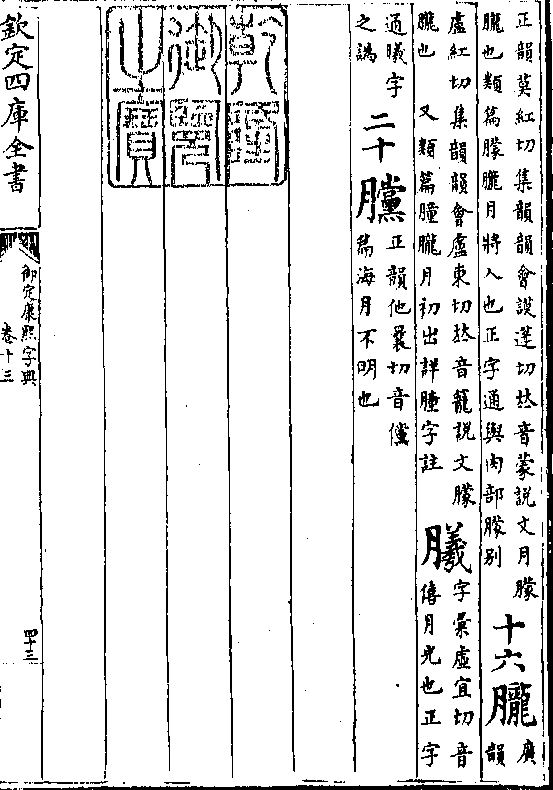 正韻莫紅切集韻韻會謨蓬切𠀤音蒙說文月朦
朧也類篇朦朧月將入也正字通與肉部朦别
十六朧
廣
韻
盧紅切集韻韻會盧東切𠀤音籠說文朦
朧也 又類篇朣朧月初出詳朣字註
字彙虛宜切音
僖月光也正字
通曦字
之譌
二十
正韻他曩切音儻
篇海月不明也
乾隆
御覽
之寶
欽定四庫全書
御定康熙字典
卷十三
四十三